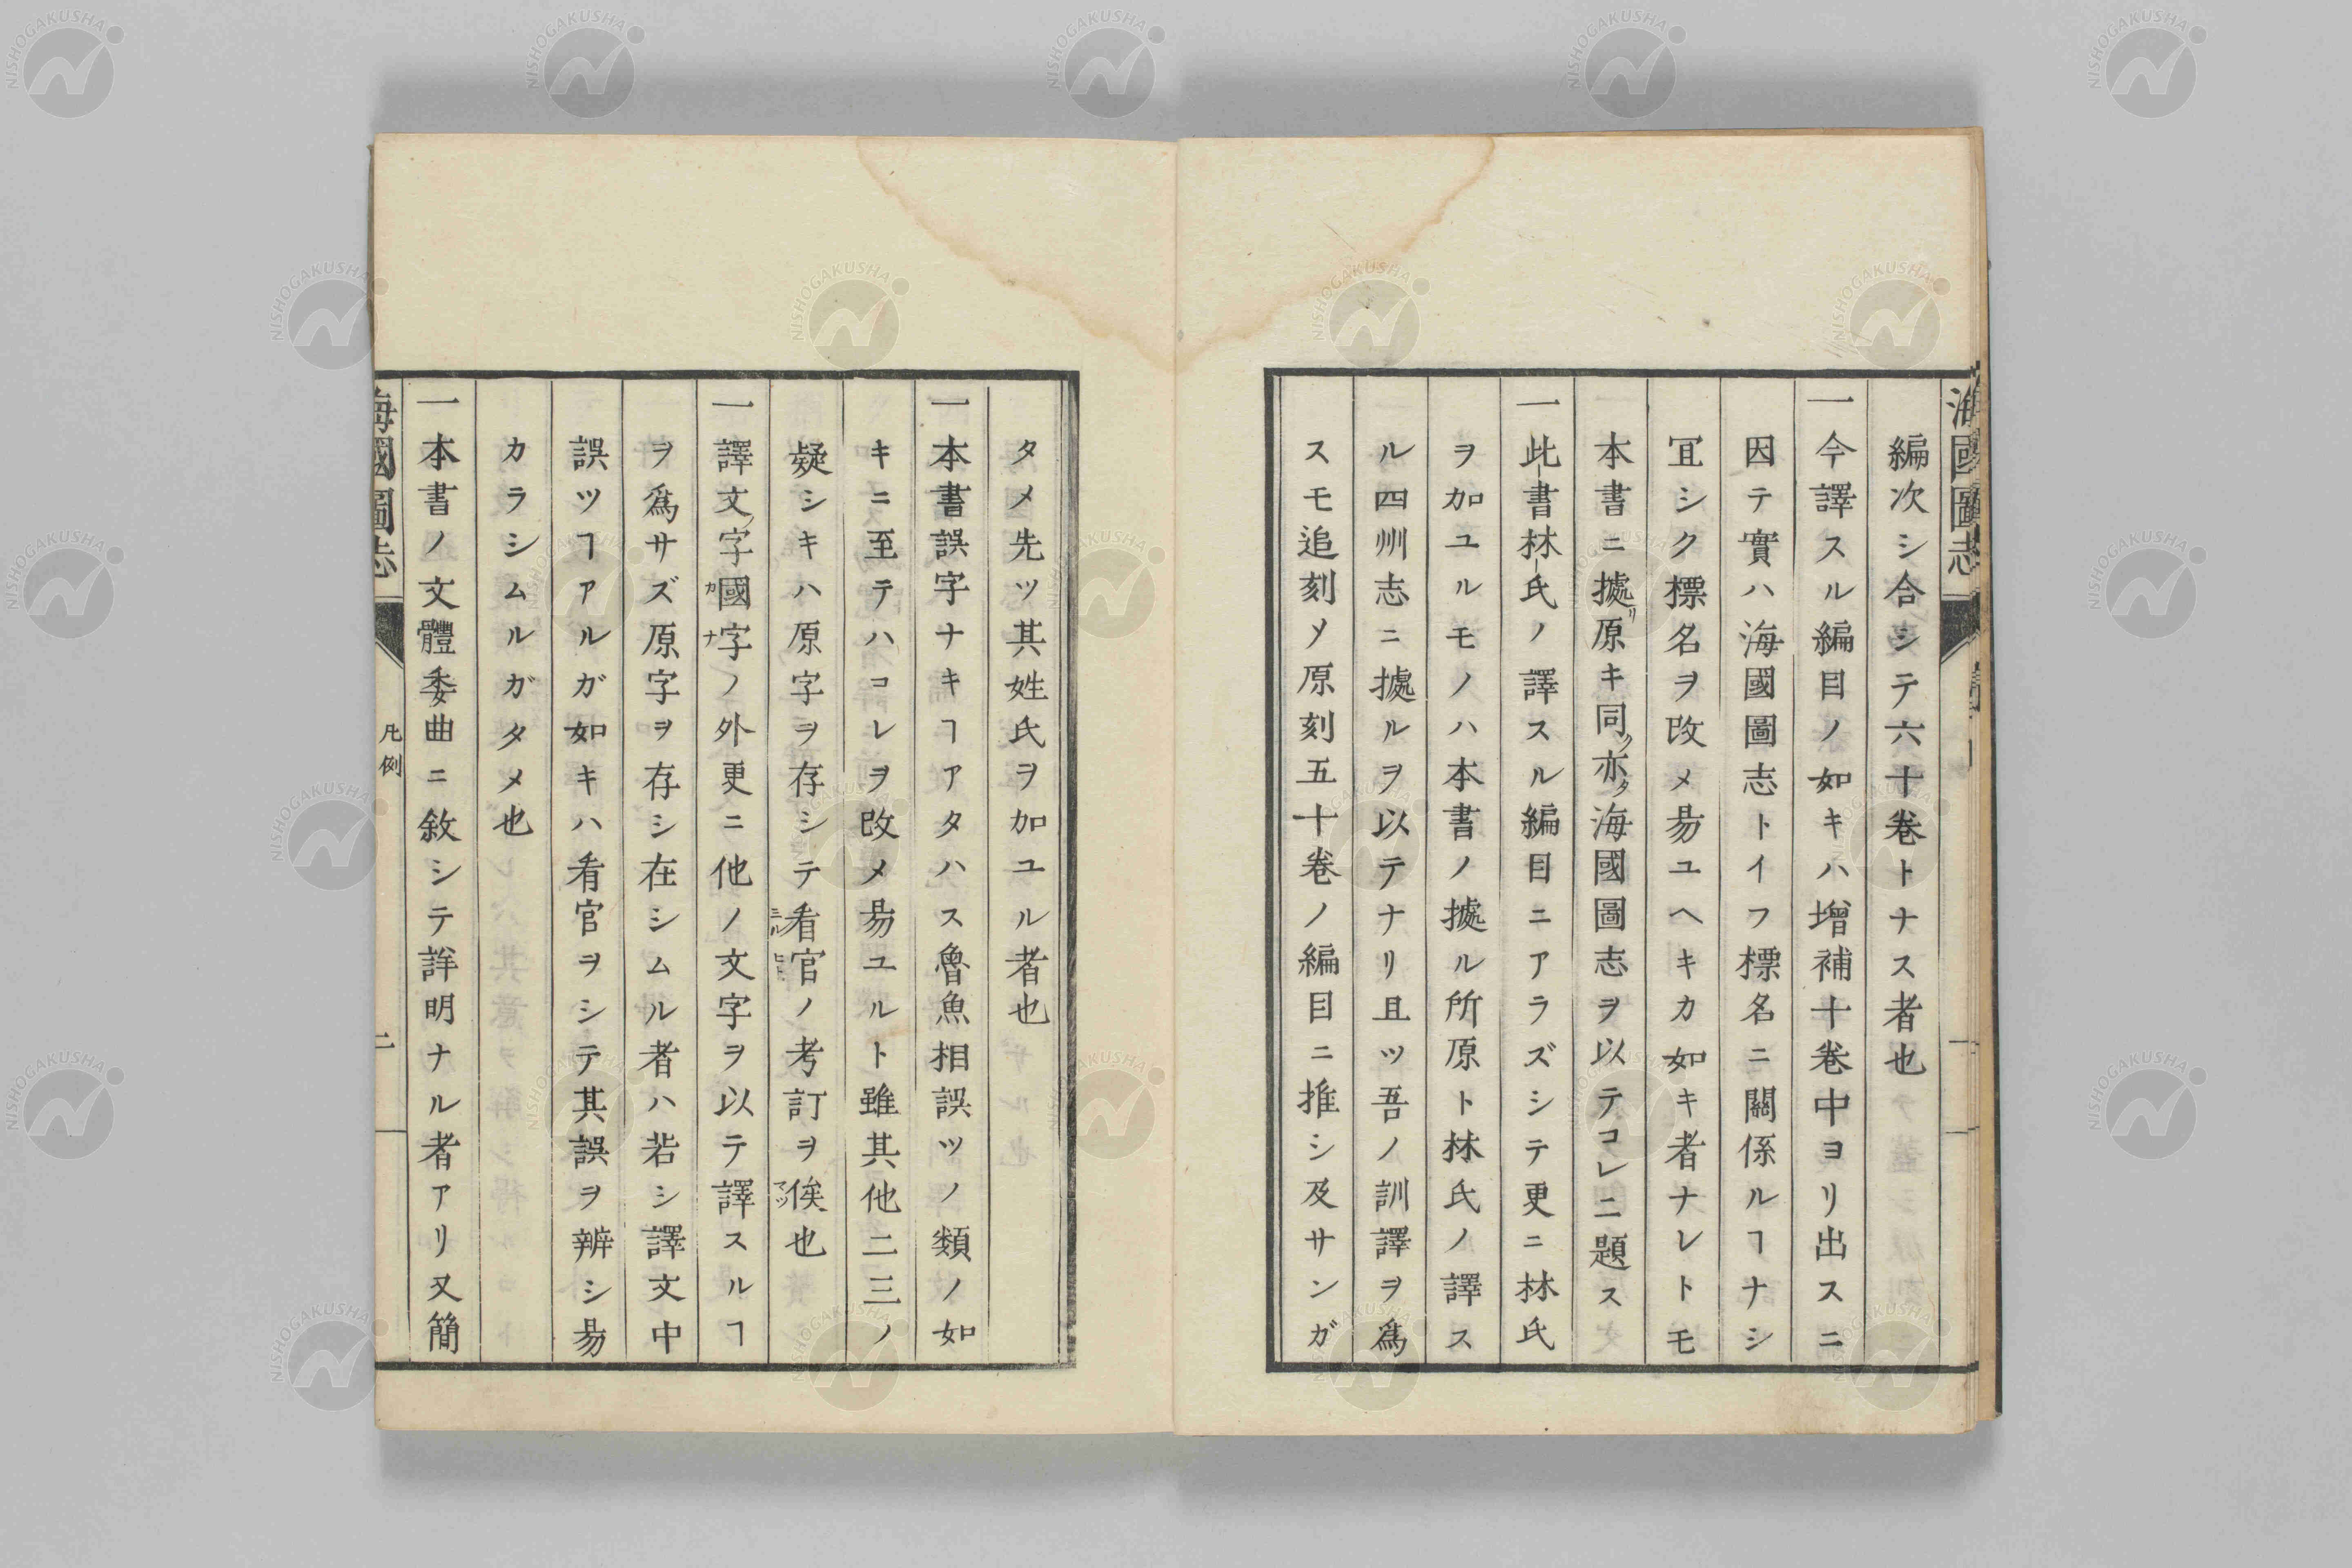 海國圖志
編次シ合シテ六十巻トナス者也
一今譯スル編目ノ如キハ增補十巻中ヨリ出スニ
因テ實ハ海國圖志トイフ標名ニ關係ルヿナシ
冝シク標名ヲ改メ易ユヘキカ如キ者ナレトモ
本書ニ據リ原キ同ク亦タ海國圖志ヲ以テコレニ題ス
一此書林氏ノ譯スル編目ニアラズシテ更ニ林氏
ヲ加ユルモノハ本書ノ據ル所原ト林氏ノ譯ス
ル四州志ニ據ルヲ以テナリ且ツ吾ノ訓譯ヲ爲
スモ追刻メ原刻五十巻ノ編目ニ推シ及サンガ
タメ先ツ其姓氏ヲ加ユル者也
一本書誤字ナキヿアタハス魯魚相誤ツノ類ノ如
キニ至テハコレヲ改メ易ユルト雖其他二三ノ
疑シキハ原字ヲ存シテ看官ノ考訂ヲ俟也
一譯文ノ字國字ノ外更ニ他ノ文字ヲ以テ譯スルヿ
ヲ爲サズ原字ヲ存シ在シムル者ハ若シ譯文中
誤ツヿアルガ如キハ看官ヲシテ其誤ヲ辨シ易
カラシムルガタメ也
一本書ノ文體委曲ニ敘シテ詳明ナル者アリ又簡
海國圖志 凡例 二
NISHOGAKUSHA